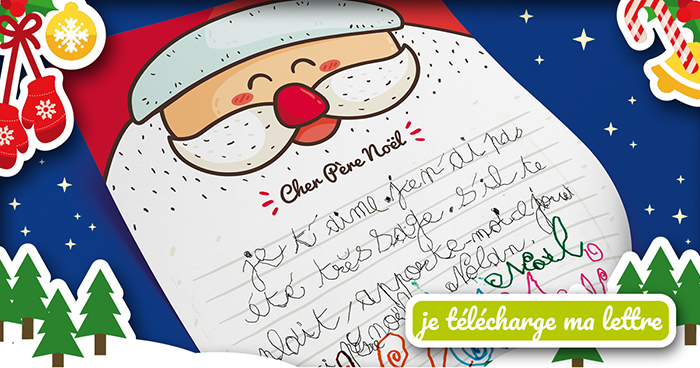 Cher Père Noël
je t'aime. j'en ai pas
été très sage. s'il te
plait, apporte-moi
Nolan.
Noël
je télécharge ma lettre